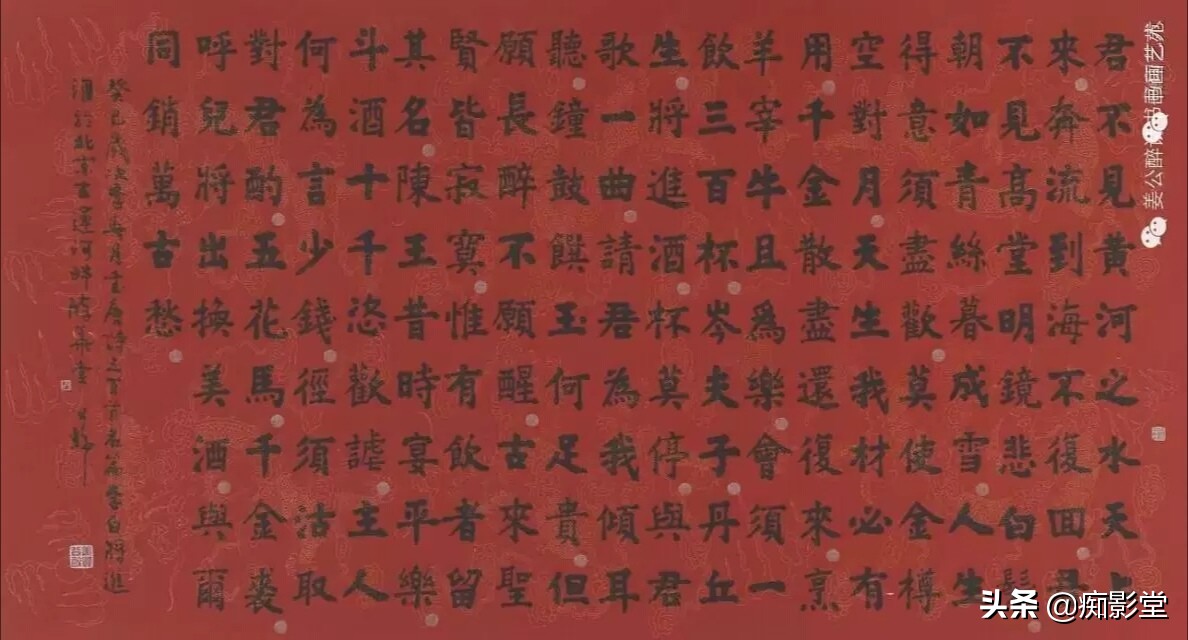 君不見黃河之水天上
來奔流到海不復回君
不見高堂明鏡悲白髮
朝如青絲暮成雪人生
得意須盡歡莫使金樽
空對月天生我材必有
用千金散盡還復來烹
羊宰牛且爲樂會須一
飲三百杯岑夫子丹丘
生將進酒杯莫停與君
歌一曲請君為我傾耳
聽鐘鼓饌玉何足貴但
願長醉不願醒古來聖
賢皆寂寞惟有飲者留
其名陳王昔時宴平樂
斗酒十千恣歡謔主人
何為言少錢徑須沽取
對君酌五花馬千金裘
呼兒將出換美酒與爾
同銷萬古愁
癸巳歲次季月書唐詩三百首名篇李白將進
酒於北京古運河畔
姜公醉书画艺苑
头条 @痴影堂